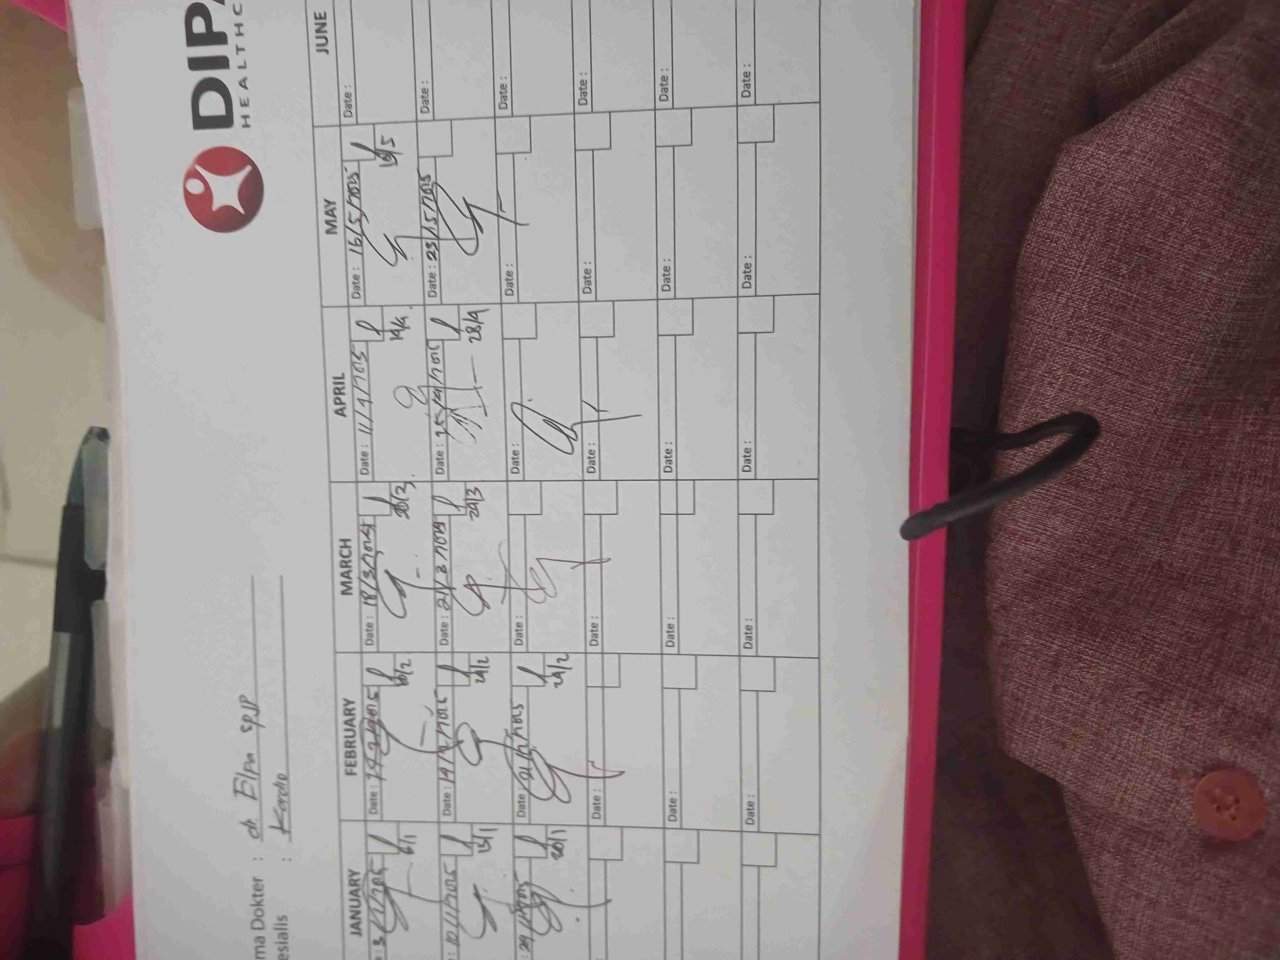 DIPA
HEALTHC
ma Dokter : dr Elfu SpJP
esialis : Kardio
JANUARY FEBRUARY MARCH APRIL MAY JUNE
: 3/1/2025 Date : Date : 18/3/2025 Date : 11/4/2025 Date : 16/5/2025 Date :
6/1 20/3 14/4 19/5
: 10/1/2025 Date : 14/2/2025 Date : 21/3/2025 Date : 25/4/2025 Date : 23/5/2025 Date :
13/1 24/2 24/3 28/4
Date : 21/2/2025 Date : Date : Date : Date :
20/1 24/2
Date : Date : Date : Date : Date :
Date : Date : Date : Date : Date :
Date : Date : Date : Date : Date :